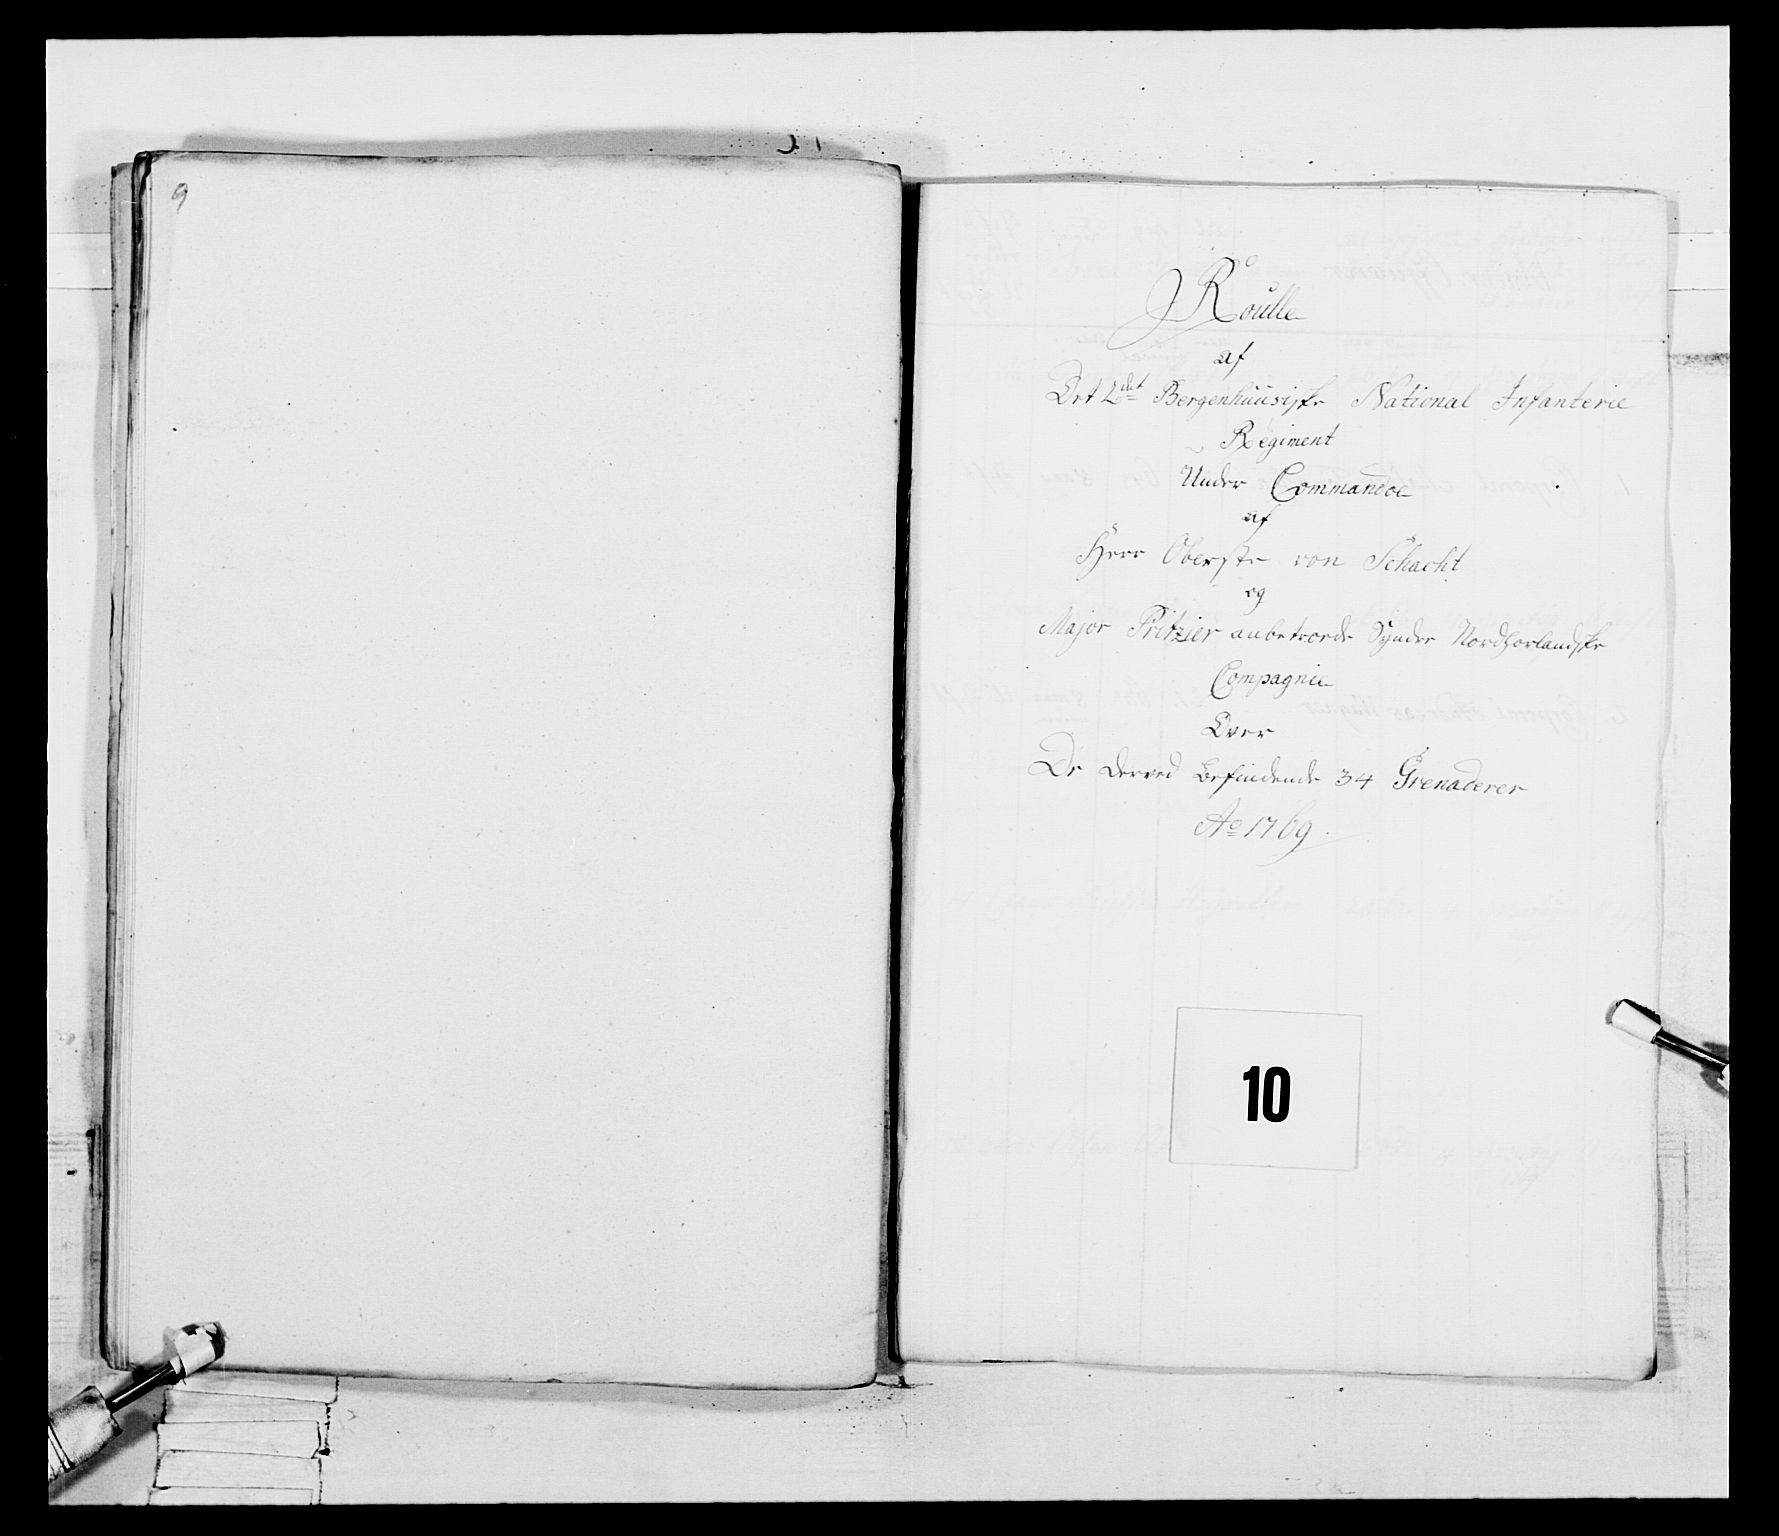 9
Roulle
af
Det 2det Bergenhuusiske National Infanterie
Regiment
Under Commandoe
af
Herr Oberste von Schacht
og
Major Pritzier anbetroede Synder Nordhorlandske
Compagnie
Over
De derved befindende 34 Grenaderer
Ao 1769.
10